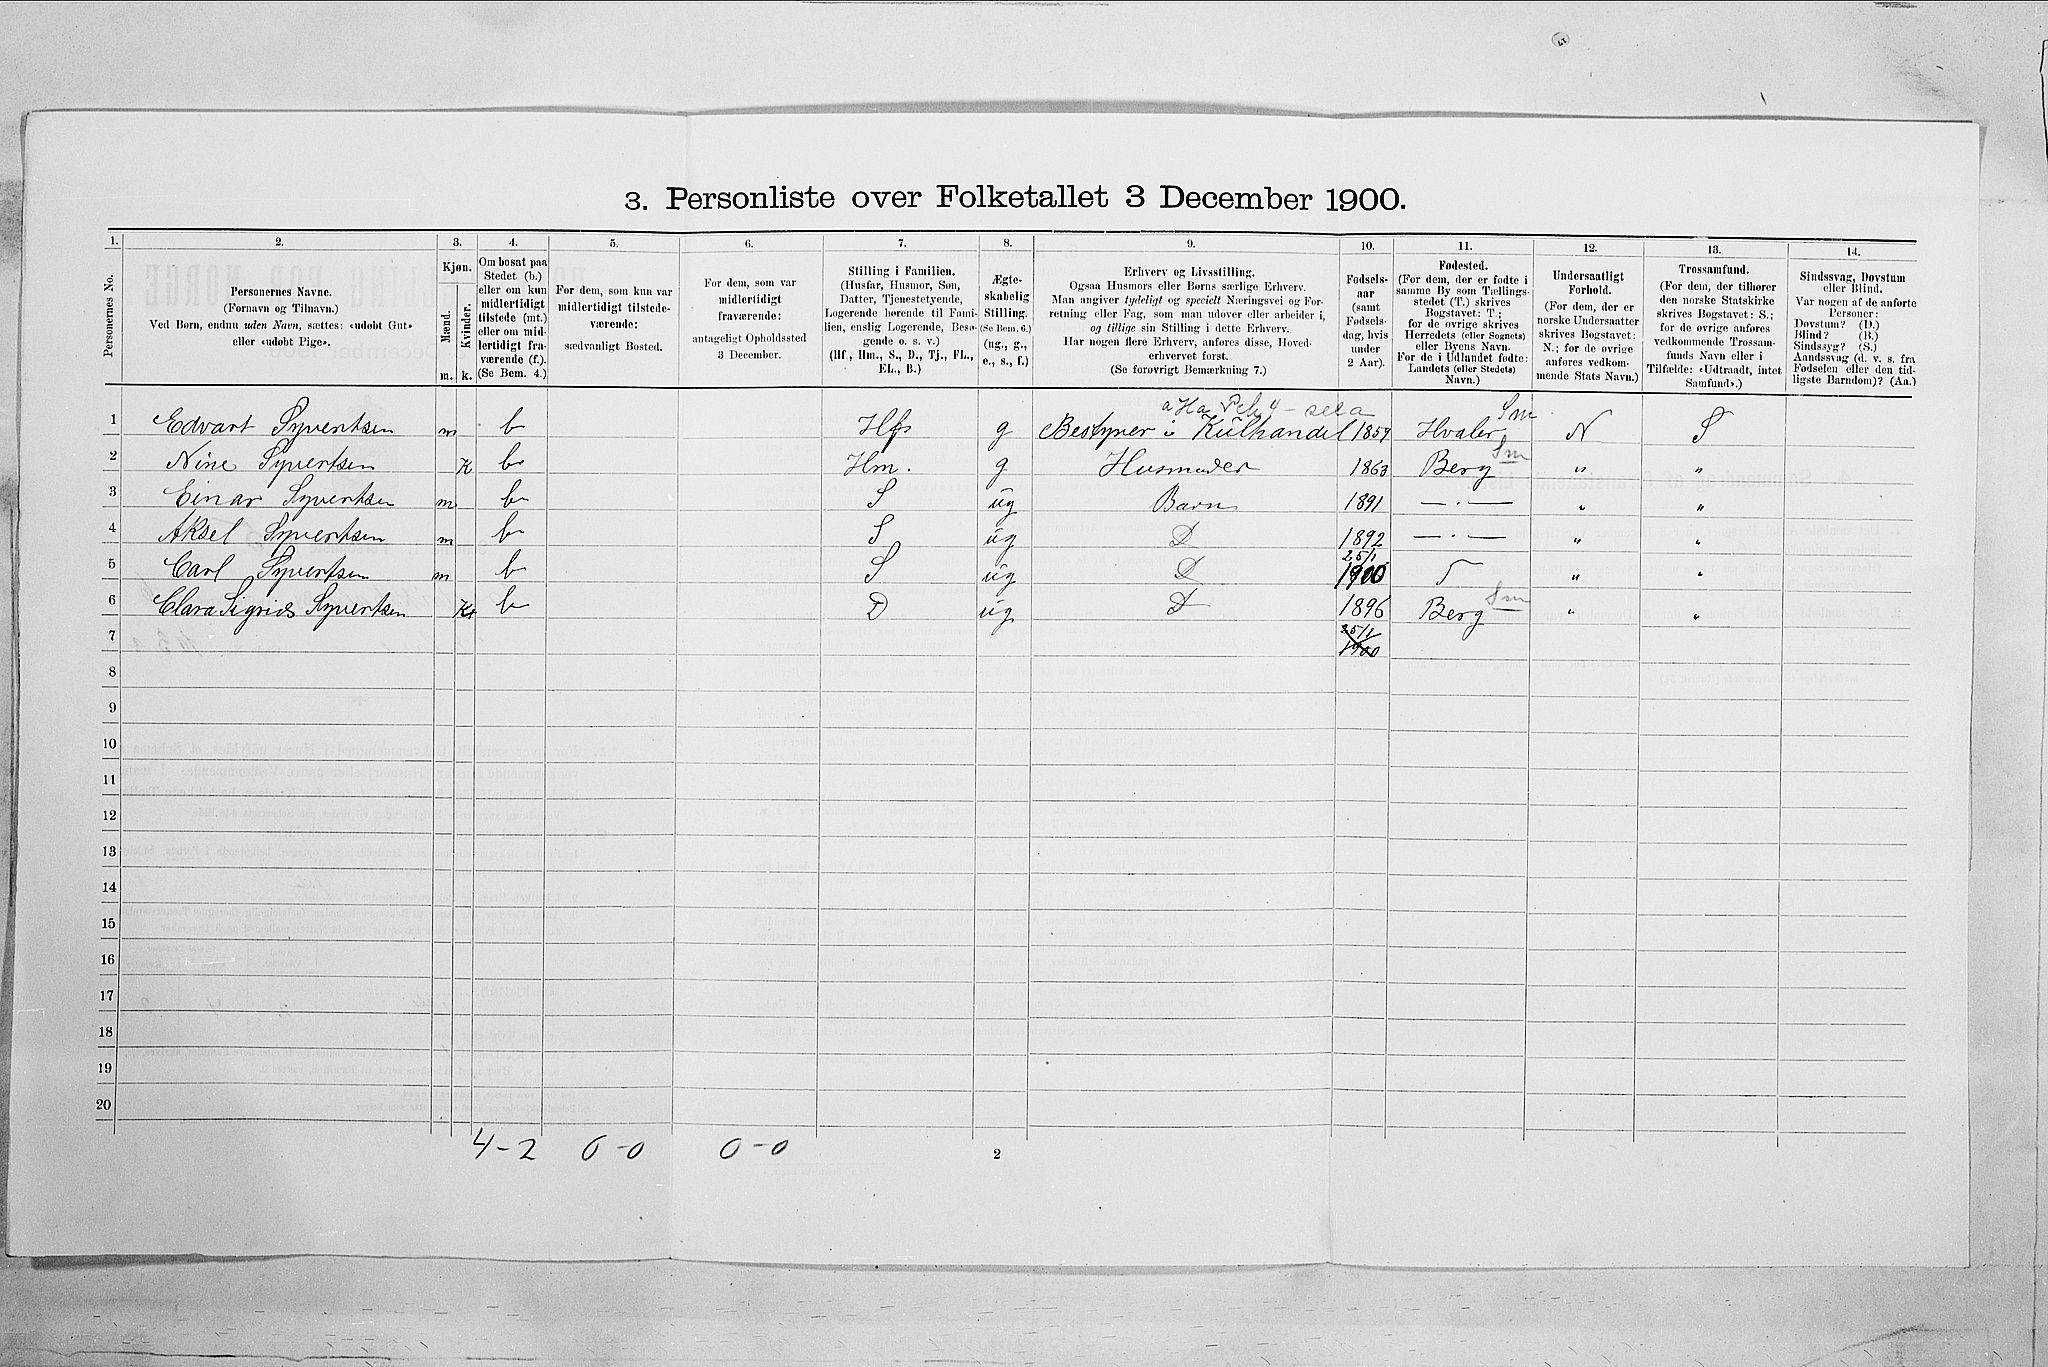 17
3. Personliste over Folketallet 3 December 1900.
1. 2. 3. 4. 5. 6. 7. 8. 9. 10. 11. 12. 13. 14.
Personernes No.
Personernes Navne.
(Fornavn og Tilnavn.)
Ved Børn, endnu uden Navn, sættes: «udøbt Gut»
eller «udøbt Pige».
Kjøn.
Mænd.
Kvinder.
m. k.
Om bosat paa
Stedet (b.)
eller om kun
midlertidigt
tilstede (mt.)
eller om mid-
lertidigt fra-
værende (f.).
(Se Bem. 4.)
For dem, som kun var
midlertidigt tilstede-
værende:
sædvanligt Bosted.
For dem, som var
midlertidigt
fraværende:
antageligt Opholdssted
3 December.
Stilling i Familien.
(Husfar, Husmor, Søn,
Datter, Tjenestetyende,
Logerende hørende til Fami-
lien, enslig Logerende, Besø-
gende o. s. v.)
(Hf., Hm., S., D., Tj., FL.,
EL., B.)
Ægte-
skabelig
Stilling.
(Se Bem. 6.)
(ug., g.,
e., s., f.)
Erhverv og Livsstilling.
Ogsaa Husmors eller Børns særlige Erhverv.
Man angiver tydeligt og specielt Næringsvei og For-
retning eller Fag, som man udover eller arbeider i,
og tillige sin Stilling i dette Erhverv.
Har nogen flere Erhverv, anføres disse, Hoved-
erhvervet først.
(Se forøvrigt Bemærkning 7.)
Fødsels-
aar
(samt
Fødsels-
dag, hvis
under
2 Aar).
Fødested.
(For dem, der er fødte i
samme By som Tællings-
stedet (T.) skrives
Bogstavet: T.;
for de øvrige skrives
Herredets (eller Sognets)
eller Byens Navn.
For de i Udlandet fødte:
Landets (eller Stedets)
Navn.)
Undersaatligt
Forhold.
(For dem, der er
norske Undersaatter
skrives Bogstavet:
N.; for de øvrige
anføres vedkom-
mende Stats Navn.)
Trossamfund.
(For dem, der tilhører
den norske Statskirke
skrives Bogstavet: S.;
for de øvrige anføres
vedkommende Trossam-
funds Navn eller i
Tilfælde: «Udtraadt, intet
Samfund».)
Sindssvag, Døvstum
eller Blind.
Var nogen af de anførte
Personer:
Døvstum? (D.)
Blind? (B.)
Sindssyg? (S.)
Aandssvag (d. v. s. fra
Fødselen eller den tid-
ligste Barndom)? (Aa.)
1 Edvart Syvertsen m b Hf g Bestyrer i Kulhandel 1859 Hvaler Sm N S
2 Nine Syvertsen K b Hm. g Husmoder 1863 Berg Sm " "
3 Einar Syvertsen m b S ug Barn 1891 — · — " "
4 Aksel Syvertsen m b S ug D 1892 — · — " "
5 Carl Syvertsen m b S ug D 25/1 1900 T " "
6 Clara Sigrid Syvertsen K b D ug D 1896 Berg Sm " "
7 25/1 1900
8
9
10
11
12
13
14
15
16
17
18
19
20
4-2 0-0 0-0
2